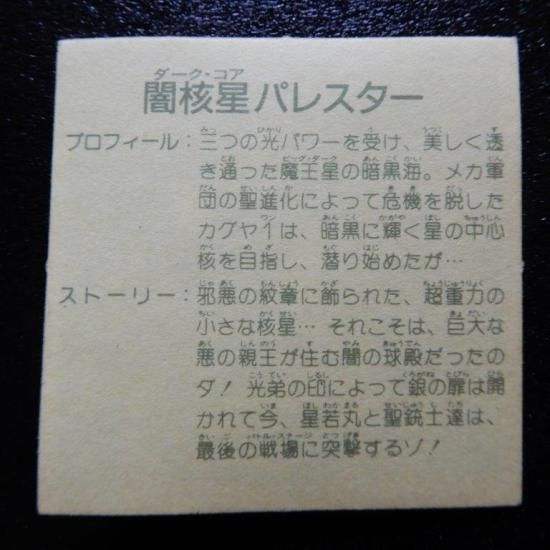 ダーク・コア
闇核星パレスター
プロフィール:三つの光パワーを受け、美しく透
き通った魔王星の暗黒海。メカ軍
団の聖進化によって危機を脱した
カグヤ1は、暗黒に輝く星の中心
核を目指し、潜り始めたが…
ストーリー:邪悪の紋章に飾られた、超重力の
小さな核星… それこそは、巨大な
悪の親王が住む闇の球殿だったの
ダ! 光弟の印によって銀の扉は開
かれて今、星若丸と聖銃士達は、
最後の戦場に突撃するゾ!